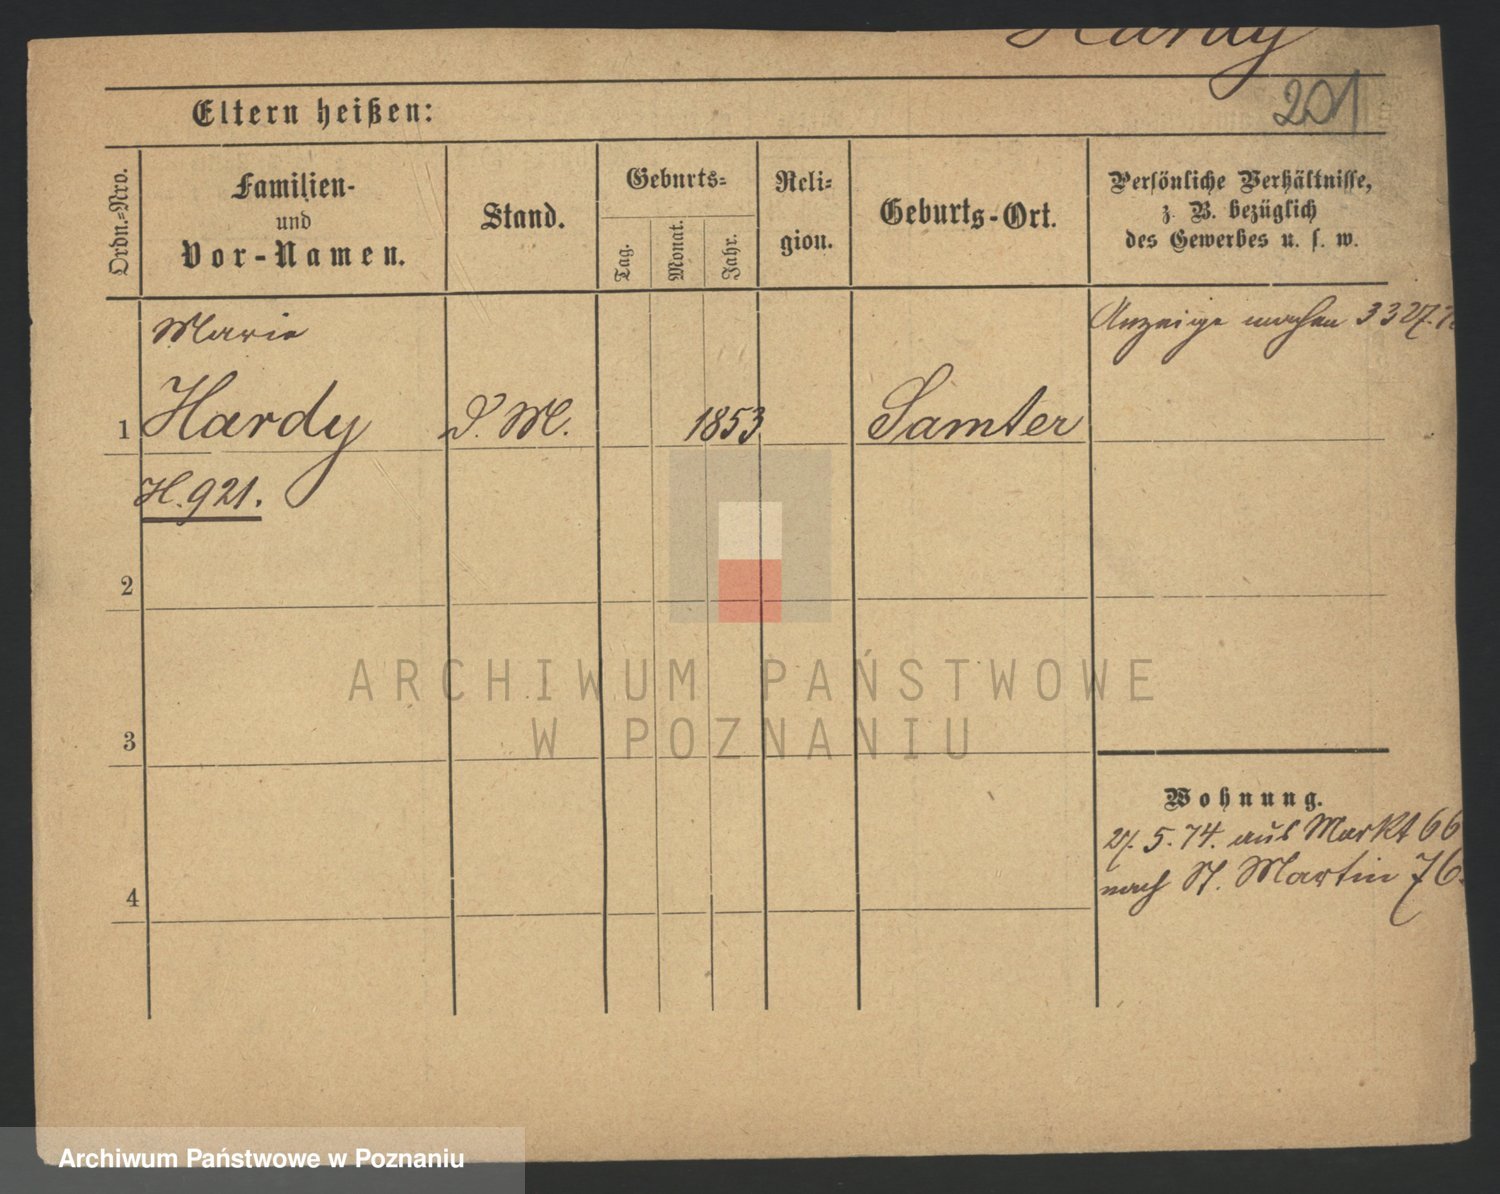 Hardy
201
Eltern heißen:
Ordn.=Nro.
Familien-
und
Vor-Namen.
Stand.
Geburts=
Tag.
Monat.
Jahr.
Reli=
gion.
Geburts-Ort.
Persönliche Verhältnisse,
z. B. bezüglich
des Gewerbes u. s. w.
Marie
Anzeige machen
1 Hardy D. M. 1853 Samter
H. 921.
2
3
4
Wohnung.
27. 5. 74. aus Markt 66
nach St. Martin 76.
ARCHIWUM PAŃSTWOWE
W POZNANIU
Archiwum Państwowe w Poznaniu